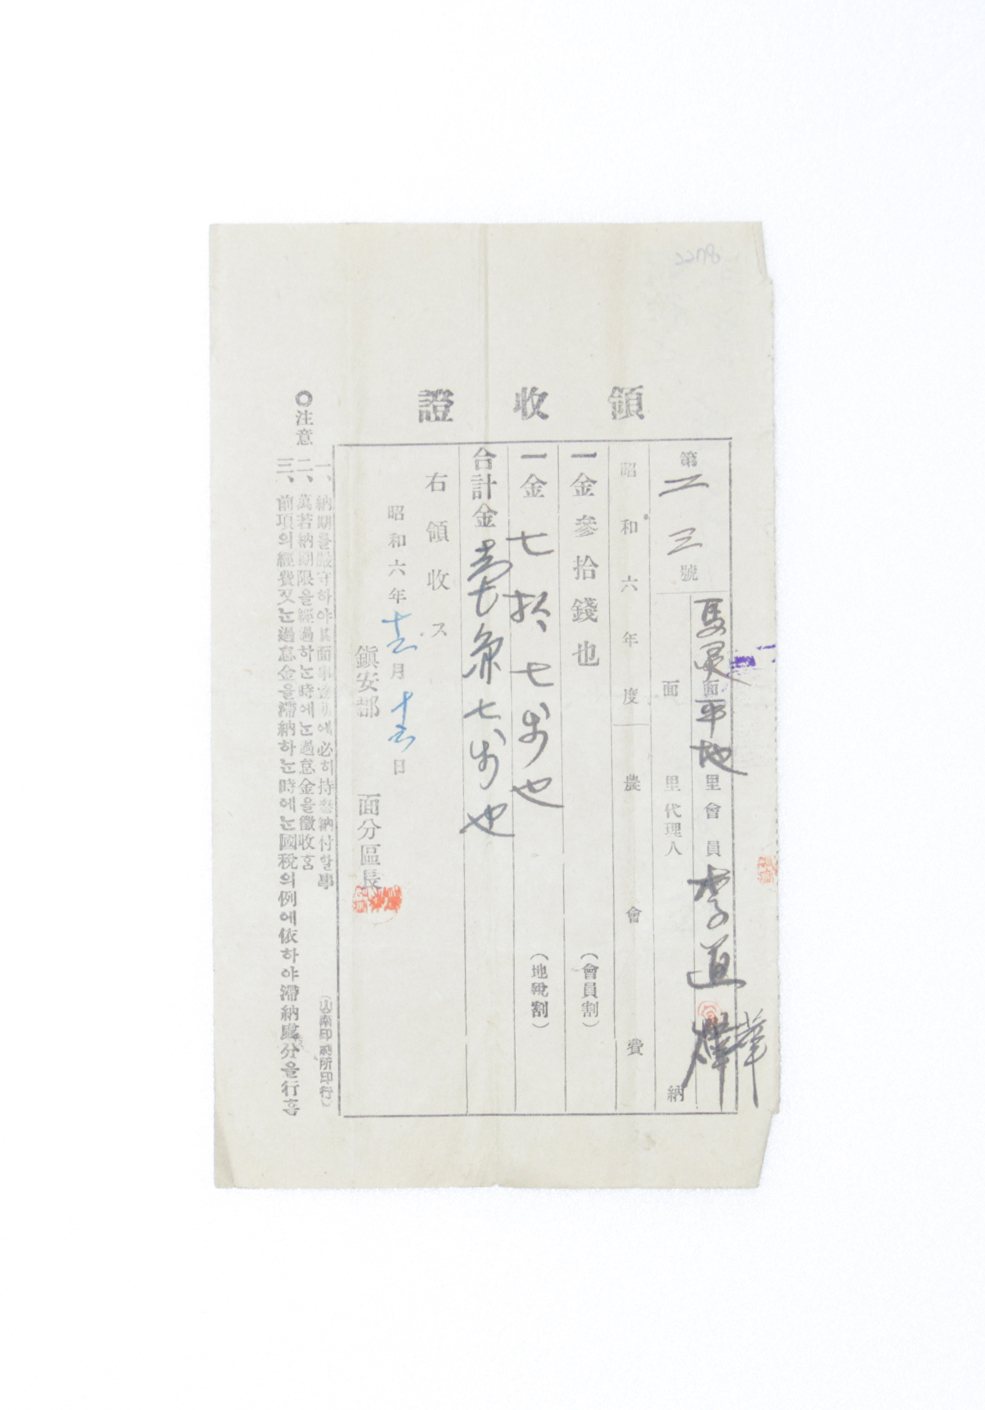 領收證
第二三號
馬灵面平地里會員李道
面里代理人納
昭和六年度農會費
一金參拾錢也(會員割)
一金七拾七戔也(地稅割)
合計金壱円七戔也
右領收ス
昭和六年十二月十六日
鎭安郡面分區長
◎注意
一、納期를嚴守하야其面에必히持參納付할事
二、萬若納期限을經過하는時에는過怠金을徵收홈
三、前項의經費又는過怠金을滯納하는時에는國稅의例에依하야滯納處分을行홈
(山南印刷所印行)